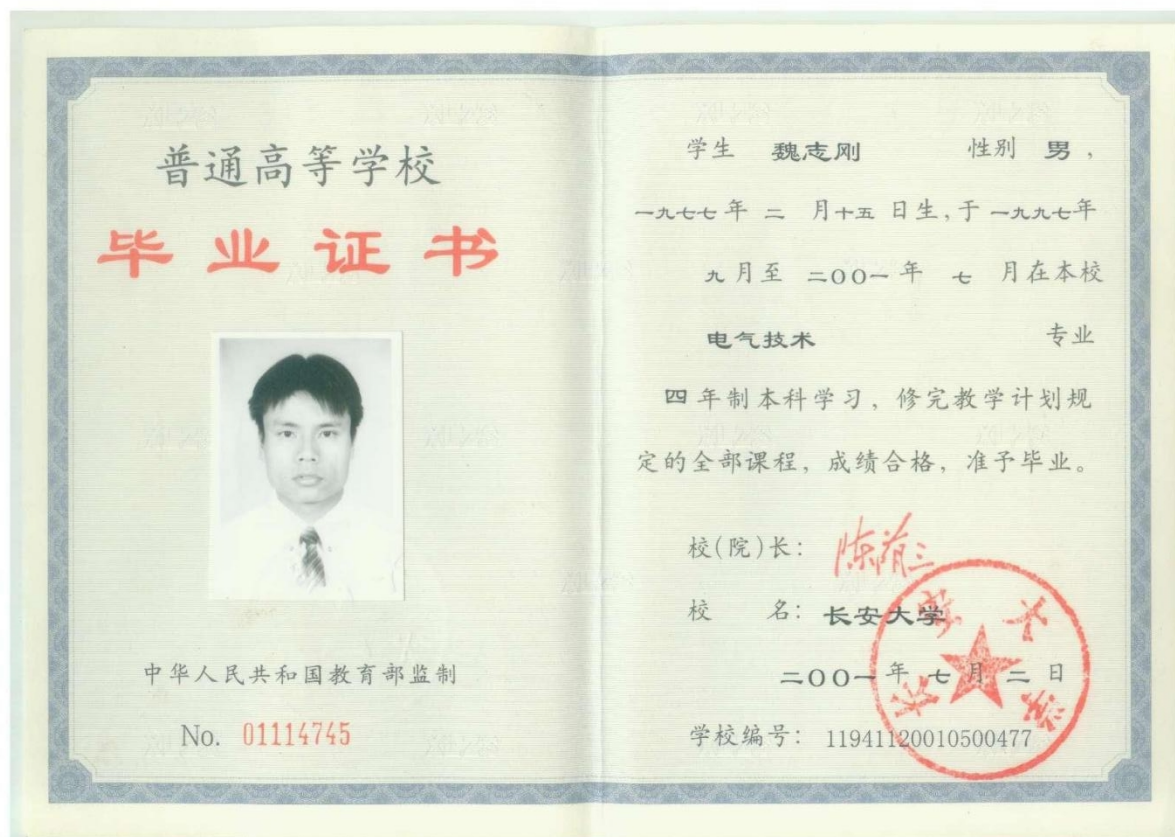 普通高等学校
毕业证书
中华人民共和国教育部监制
No. 01114745
学生 魏志刚 性别 男，
一九七七年 二 月十五 日生，于 一九九七年
九月至 二〇〇一 年 七 月在本校
电气技术 专业
四年制本科学习，修完教学计划规
定的全部课程，成绩合格，准予毕业。
校(院)长：
校 名：长安大学
二〇〇一年 七 月 二 日
学校编号：11941120010500477
长安大学